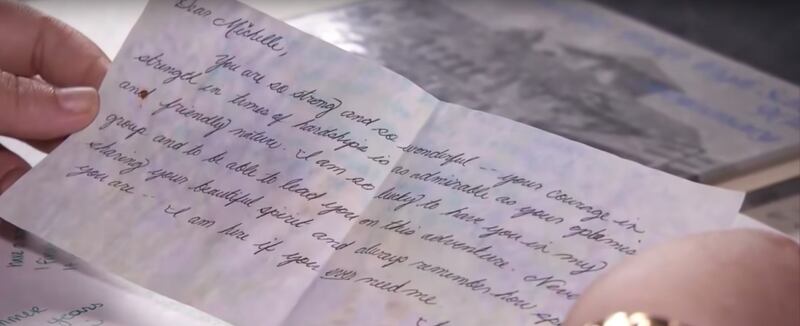 Dear Michelle,
You are so strong and so wonderful -- your courage in
strength in times of hardships is as admirable as your optimis
and friendly nature. I am so lucky to have you in my
group and to be able to lead you on this adventure. Neve
sharing your beautiful spirit and always remember how spe
you are -- I am here if you ever need me
years